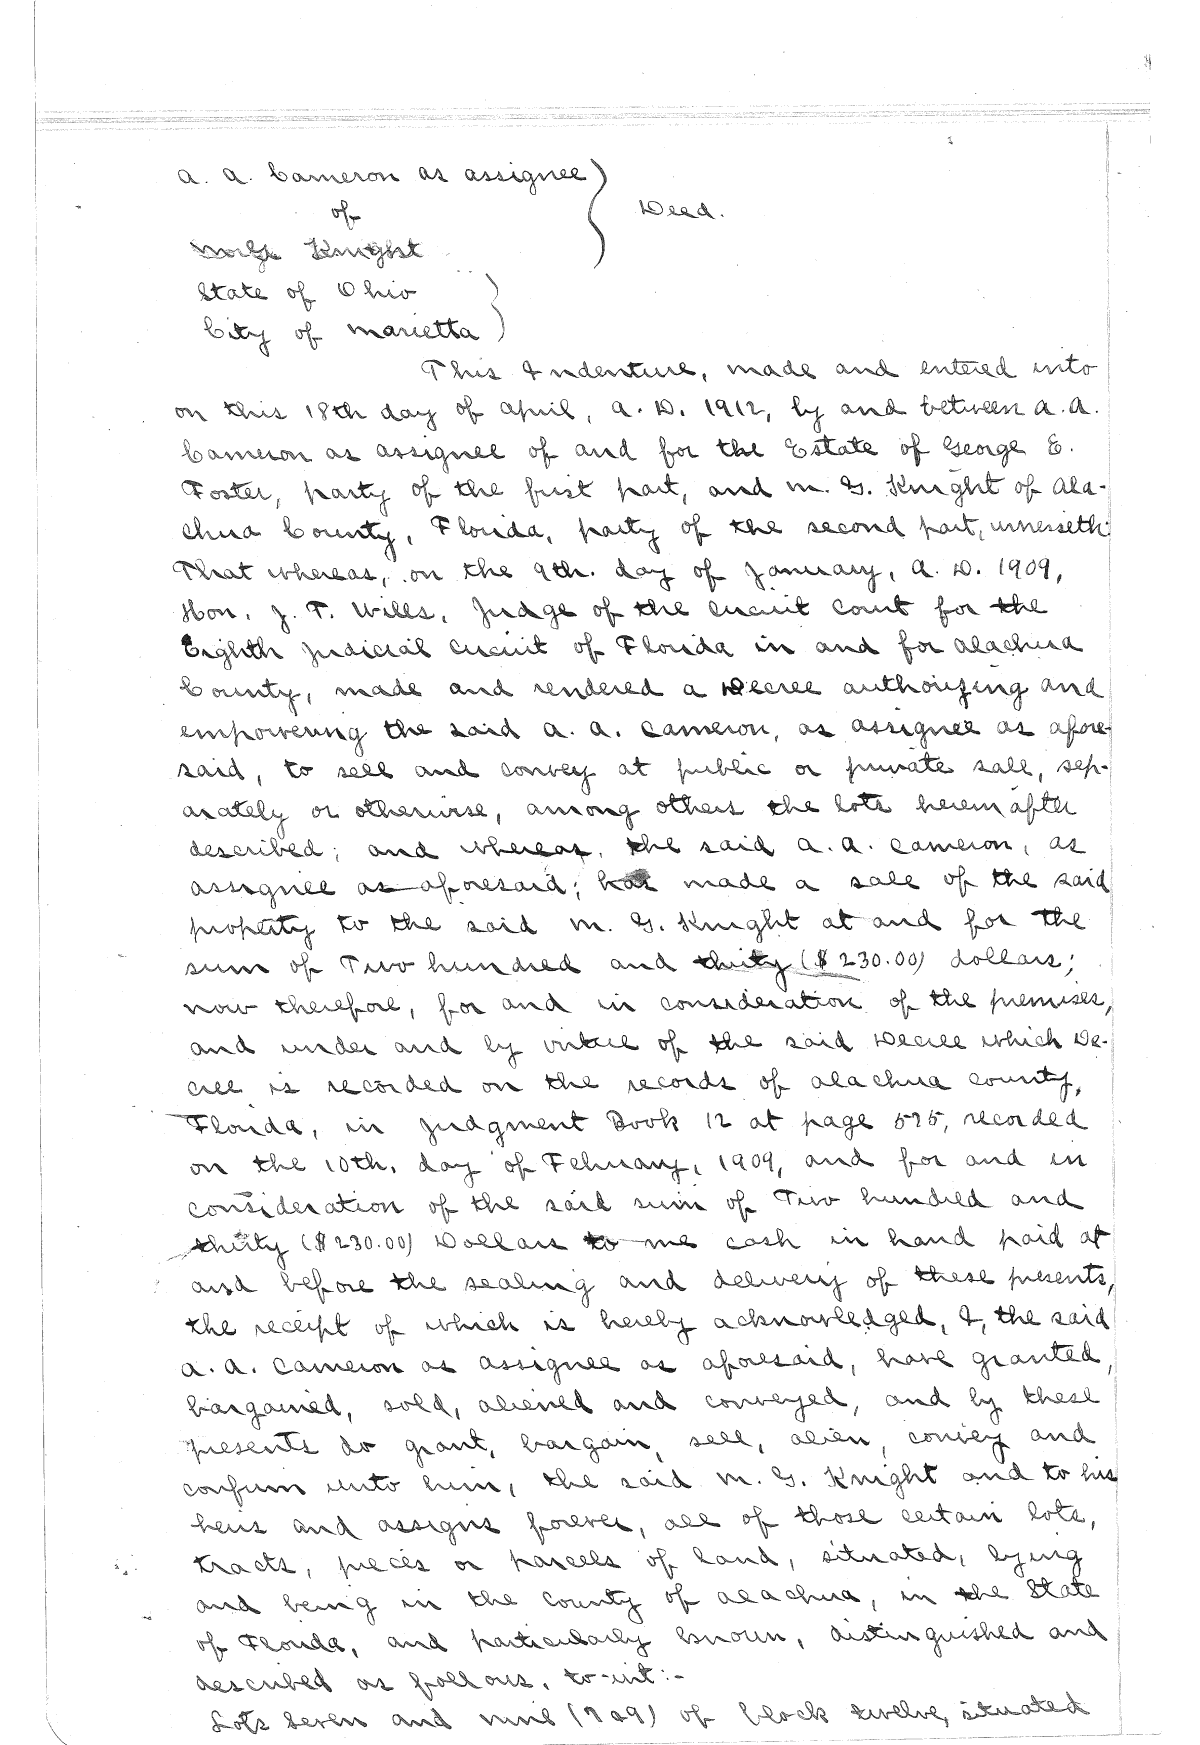 A. A. Cameron as assignee
of
Deed.
Knight
State of Ohio
City of Marietta
This Indenture, made and entered into
on this 18th day of April, A. D. 1912, by and between A. A.
Cameron as assignee of and for the Estate of George E.
Foster, party of the first part, and M. G. Knight of Ala-
chua County, Florida, party of the second part, witnesseth:
That whereas, on the 9th. day of January, A. D. 1909,
Hon. J. T. Wills, Judge of the circuit court for the
Eighth Judicial Circuit of Florida in and for Alachua
County, made and rendered a Decree authorizing and
empowering the said A. A. Cameron, as assignee as afore-
said, to sell and convey at public or private sale, sep-
arately or otherwise, among others the lots hereinafter
described; and whereas, the said A. A. Cameron, as
assignee as aforesaid; has made a sale of the said
property to the said M. G. Knight at and for the
sum of Two hundred and thirty ($230.00) dollars;
now therefore, for and in consideration of the premises,
and under and by virtue of the said Decree which De-
cree is recorded on the records of Alachua County,
Florida, in Judgment Book 12 at page 575, recorded
on the 10th. day of February, 1909, and for and in
consideration of the said sum of Two hundred and
thirty ($230.00) Dollars to me cash in hand paid at
and before the sealing and delivery of these presents,
the receipt of which is hereby acknowledged, I, the said
A. A. Cameron as assignee as aforesaid, have granted,
bargained, sold, aliened and conveyed, and by these
presents do grant, bargain, sell, alien, convey and
confirm unto him, the said M. G. Knight and to his
heirs and assigns forever, all of those certain lots,
tracts, pieces or parcels of land, situated, lying
and being in the County of Alachua, in the State
of Florida, and particularly known, distinguished and
described as follows, to-wit:-
Lots seven and nine (7 & 9) of block twelve, situated